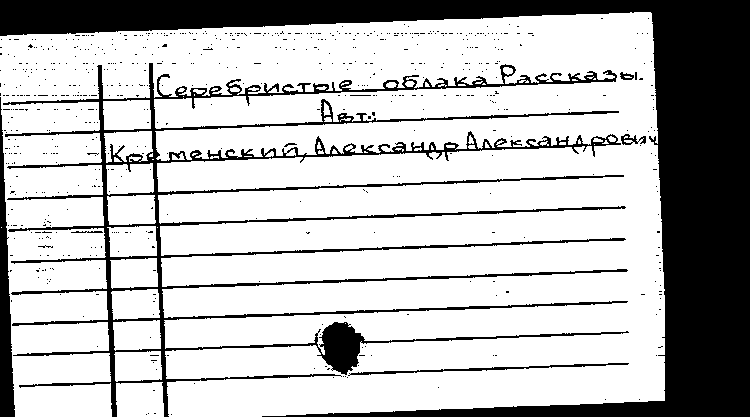 Серебристые облака Рассказы.
Авт.:
Кременский, Александр Александрович